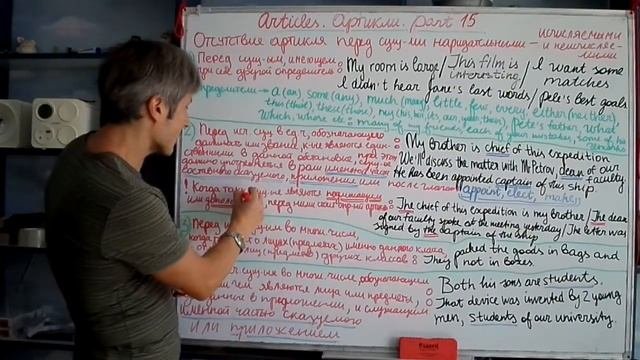 Articles. Артикли. part 15
Отсутствие артикля перед сущ-ми нарицательными - исчисляемыми и неисчисляемыми
Перед сущ-им, имеющем при себе другой определитель:
My room is large/ This film is interesting/ I want some matches
I didn't hear Jane's last words/ Pete's best goals
определители → a(an) some(any), much(many) little, few, every, either(neither)
this(that), these(those), my(his, her, its, our, your, their), Pete's father, what
which, where etc = many of my friends, each of your mistakes, some of his remarks
2) Перед исч сущ в ед ч, обозначающего
должность или звание, к-ые являются единственными в данной обстановке, при этом
данно употребляется в роли именной части
составного сказуемого, приложения или после глагол
My brother is chief of this expedition
We'll discuss the matter with Mr Petrov, dean of our faculty
He has been appointed captain of this ship
appoint, elect, make
! Когда такие сущ-ые являются подлежащим
или дополнением, перед ними стоит опр-ый артикль:
The chief of this expedition is my brother/ The dean
of our faculty spoke at the meeting yesterday/ The letter was
signed by the captain of the ship
Перед сущ-ми во множ числе,
когда о лицах (предметах) именно данного класса,
лиц (предметов) других классов:
They packed the goods in bags and
not in boxes
сущ-ми во множ числе, обозначающими
чем являются лица или предметы,
в предложении, и служащими
именной частью сказуемого
или приложением
Both his sons are students.
That device was invented by 2 young
men, students of our university.